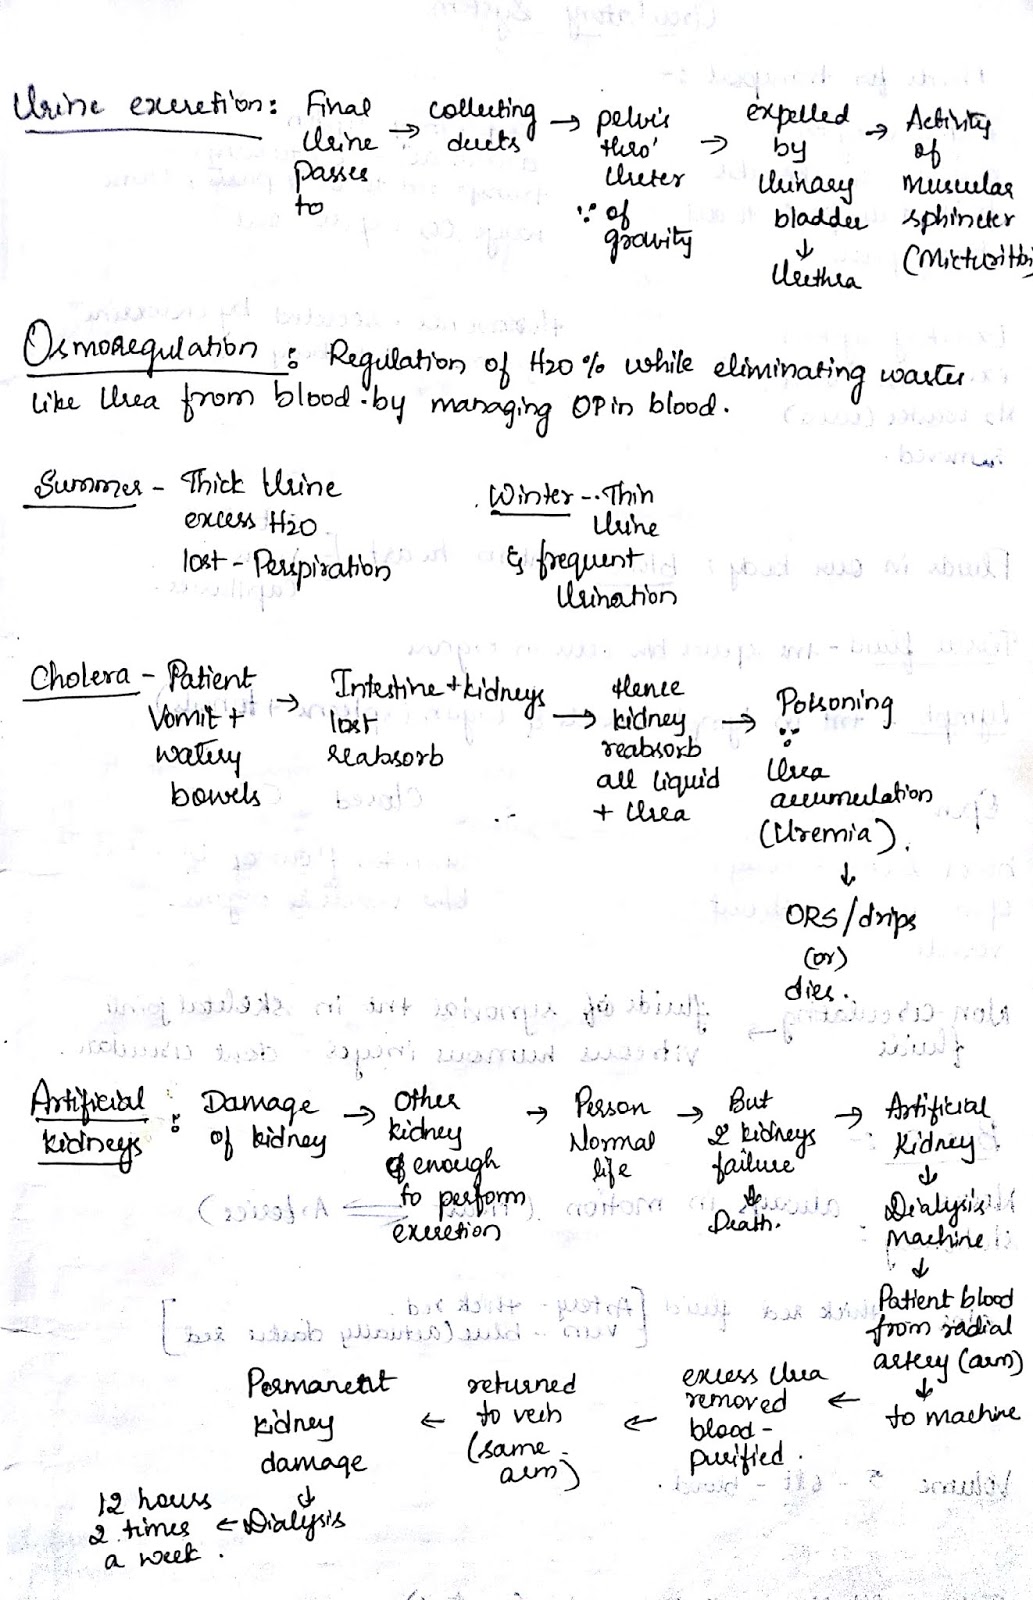 Urine excretion:
Final
Urine
passes
to
→ collecting
ducts
→ pelvis
thro'
Ureter
∵ of
gravity
→ expelled
by
Urinary
bladder
↓
Urethra
→ Activity
of
Muscular
sphincter
(Micturitio
Osmoregulation : Regulation of H2O % while eliminating wastes
like Urea from blood by managing OP in blood.
Summer - Thick Urine
excess H2O
lost - Perspiration
Winter - Thin
Urine
& frequent
Urination
Cholera - Patient
Vomit +
watery
bowels
→ Intestine + kidneys
lost
reabsorb
→ Hence
kidney
reabsorb
all liquid
+ Urea
→ Poisoning
∵
Urea
accumulation
(Uremia).
↓
ORS/drips
(or)
dies.
Artificial
kidneys :
Damage
of kidney
→ Other
kidney
enough
to perform
excretion
→ Person
Normal
life
→ But
2 kidneys
failure
↓
Death.
→ Artificial
Kidney
↓
Dialysis
Machine
↓
Patient blood
from radial
artery (arm)
↓
to machine
← excess Urea
removed
blood -
purified.
← returned
to vein
(same
arm)
← Permanent
kidney
damage
↓
Dialysis
← 12 hours
2 times
a week.